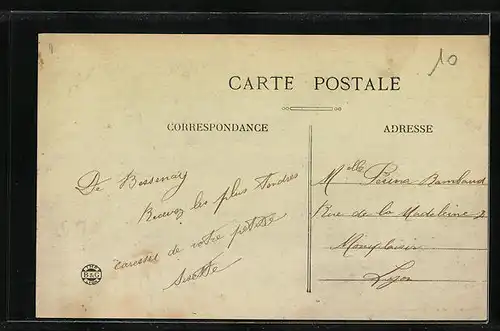 10
CARTE POSTALE
CORRESPONDANCE
ADRESSE
De Bessenay
Recevez les plus tendres
caresses de votre petite
Melle Bambaud
Rue de la Madeleine 2
Monplaisir
Lyon
B&G